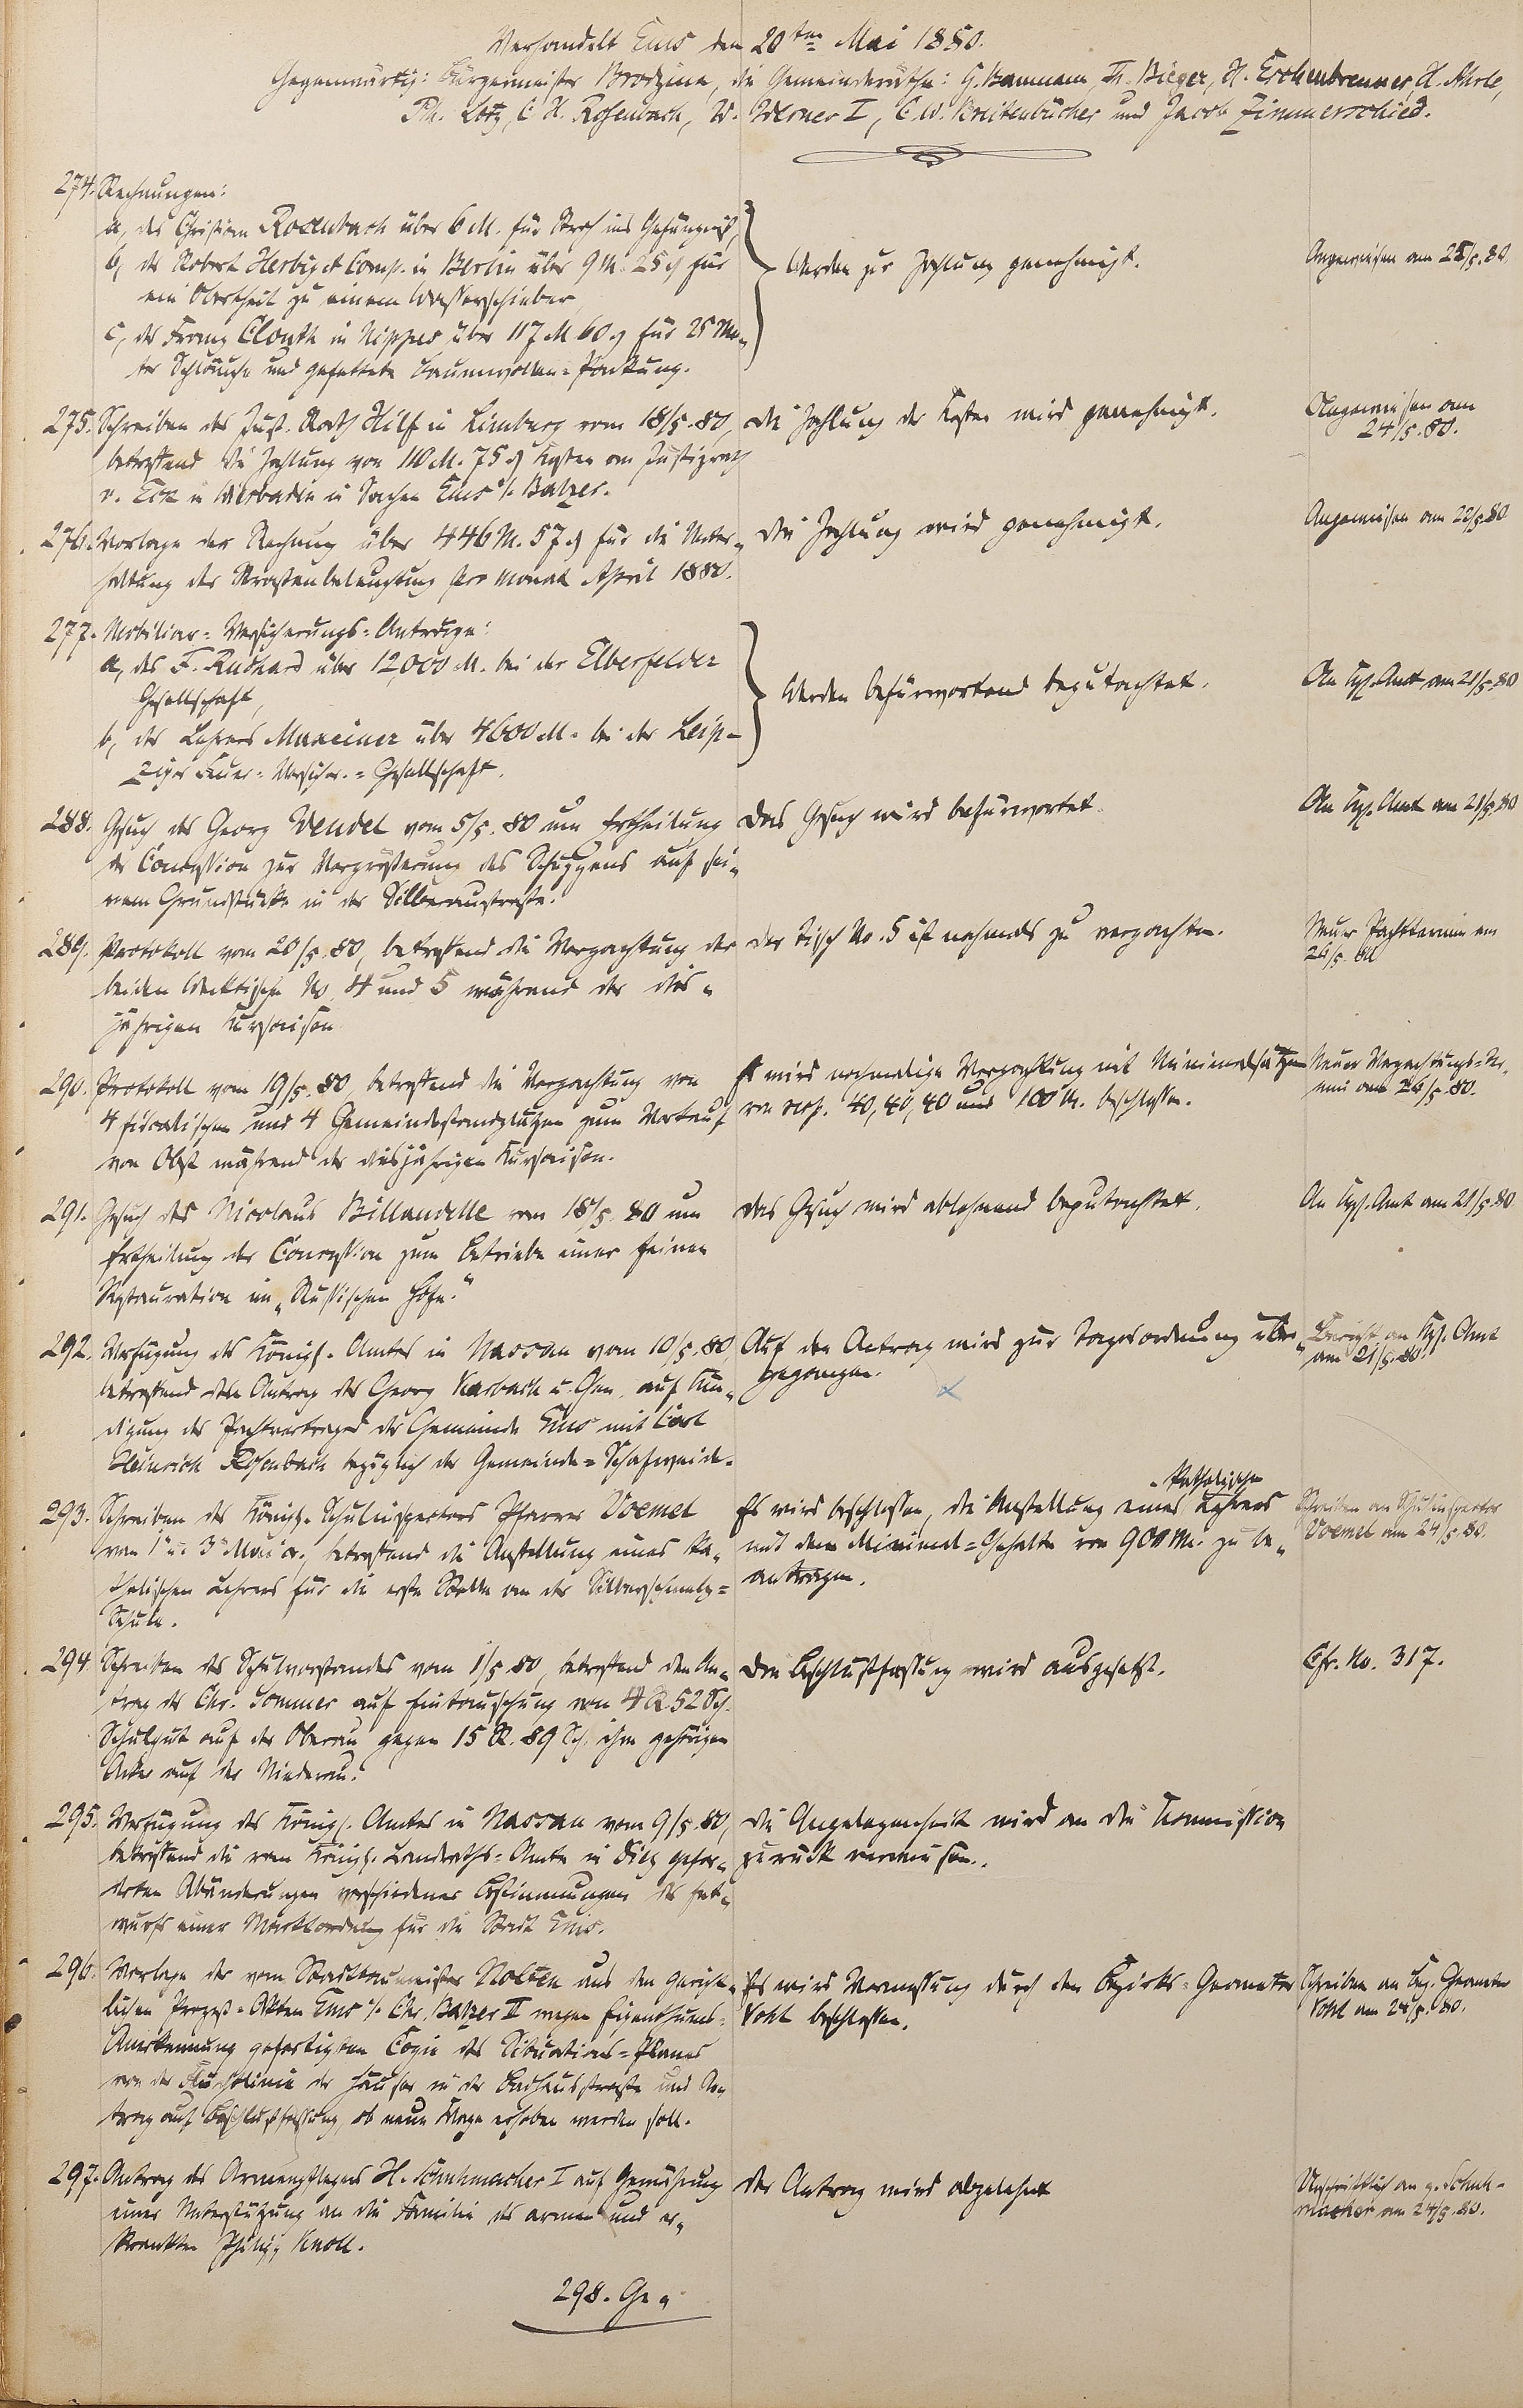 Verhandelt Ems den 20ten Mai 1880.
Gegenwärtig: Bürgermeister Brodzina, die Gemeinderäthe: G. Baumann, Th. Bieger, H. Eschenbrenner, H. Ahrle,
Ph. Lotz, C. H. Rosenbach, W. Werner I, C. W. Breitenbücher und Jacob Zimmerschied.
274. Rechnungen:
a, des Christian Rosenbach über 6 M. für Stroh ins Gefängniß,
b, der Robert Herbig et Comp. in Berlin über 9 M. 25 ₰ für
ein Obertheil zu einem Wasserschieber,
c, des Franz Clouth in Nippes über 117 M 60 ₰ für 25 Me-
ter Schläuche und gefettete Baumwollen-Packung.
Werden zur Zahlung genehmigt.
Angewiesen am 25/5.80.
275. Schreiben des Just. Rath Hilf in Limburg vom 18/5.80,
betreffend die Zahlung von 110 M. 75 ₰ Kosten an Justizrath
v. Eck in Wiesbaden in Sachen Ems ./. Balzer.
Die Zahlung der Kosten wird genehmigt.
Angewiesen am
24/5.80.
276. Vorlage der Rechnung über 446 M. 57 ₰ für die Unter-
haltung der Straßenbeleuchtung pro Monat April 1880.
Die Zahlung wird genehmigt.
Angewiesen am 22/5.80
277. Mobiliar-Versicherungs-Anträge:
a, des F. Rudhard über 12,000 M. bei der Elberfelder
Gesellschaft,
b, des Lehrers Maxeiner über 4600 M. bei der Leip-
ziger Feuer-Versicher.-Gesellschaft.
Werden befürwortend begutachtet.
An Kgl. Amt am 21/5.80
288. Gesuch des Georg Wendel vom 5/5.80 um Ertheilung
der Concession zur Vergrößerung des Schuppens auf sei-
nem Grundstücke in der Silberaustraße.
Das Gesuch wird befürwortet.
An Kgl. Amt am 21/5.80
289. Protokoll vom 20/5.80, betreffend die Verpachtung der
beiden Wecktische No. 4 und 5 während der dies-
jährigen Kursaison.
Der Tisch No. 5 ist nochmals zu verpachten.
Neuer Pachttermin am
26/5.80
290. Protokoll vom 19/5.80, betreffend die Verpachtung von
4 fiscalischen und 4 Gemeindestandplätzen zum Verkauf
von Obst während der diesjährigen Kursaison.
Es wird nochmalige Verpachtung mit Minimalsätzen
von resp. 40, 40, 40 und 100 M. beschlossen.
Neuer Verpachtungs-Ter-
min am 26/5.80.
291. Gesuch des Nicolaus Billaudelle vom 18/5.80 um
Ertheilung der Concession zum Betriebe einer feinen
Restauration im „Russischen Hofe."
Das Gesuch wird ablehnend begutachtet.
An Kgl. Amt am 21/5.80.
292. Verfügung des Königl. Amtes in Nassau vom 10/5.80,
betreffend den Antrag des Georg Karbach u. Gen. auf Kün-
digung des Pachtvertrages der Gemeinde Ems mit Carl
Heinrich Rosenbach bezüglich der Gemeinde-Schafweide.
Auf den Antrag wird zur Tagesordnung über-
gegangen.
Bericht an Kgl. Amt
am 21/5.80.
293. Schreiben des Königl. Schulinspectors Pfarrer Voemel
vom 1. u. 3. Mai cr., betreffend die Anstellung eines ka-
tholischen Lehrers für die erste Stelle an der Silberschmelz-
Schule.
katholischen
Es wird beschlossen, die Anstellung eines Lehrers
mit dem Minimal-Gehalte von 900 M. zu be-
antragen.
Schreiben an Schulinspector
Voemel am 24/5.80.
294. Schreiben des Schulvorstandes vom 1/5.80, betreffend den An-
trag des Chr. Sommer auf Eintauschung von 4 R. 52 Sch.
Schulgut auf der Oberau gegen 15 R. 89 Sch. ihm gehörigen
Acker auf der Niederau.
Die Beschlußfassung wird ausgesetzt.
Cfr. No. 317.
295. Verfügung des Königl. Amtes in Nassau vom 9/5.80,
betreffend die vom Königl. Landraths-Amte in Diez gefor-
derten Abänderungen verschiedener Bestimmungen des Ent-
wurfs einer Marktordnung für die Stadt Ems.
Die Angelegenheit wird an die Commission
zurück verwiesen.
296. Vorlage der vom Stadtbaumeister Nolten aus den gericht-
lichen Prozeß-Akten Ems ./. Chr. Balzer II wegen Eigenthums-
Anerkennung gefertigten Copie des Situations-Planes
von der Fluchtlinie der Häuser in der Badhausstraße und An-
trag auf Beschlußfassung, ob neue Klage erhoben werden soll.
Es wird Vermessung durch den Bezirks-Geometer
Vohl beschlossen.
Schreiben an Bez. Geometer
Vohl am 24/5.80.
297. Antrag des Armenpflegers H. Schuhmacher I auf Gewährung
einer Unterstützung an die Familie des armen und er-
krankten Philipp Knoll.
Der Antrag wird abgelehnt
Abschriftlich an p. Schuh-
macher am 24/5.80.
298. Ge-